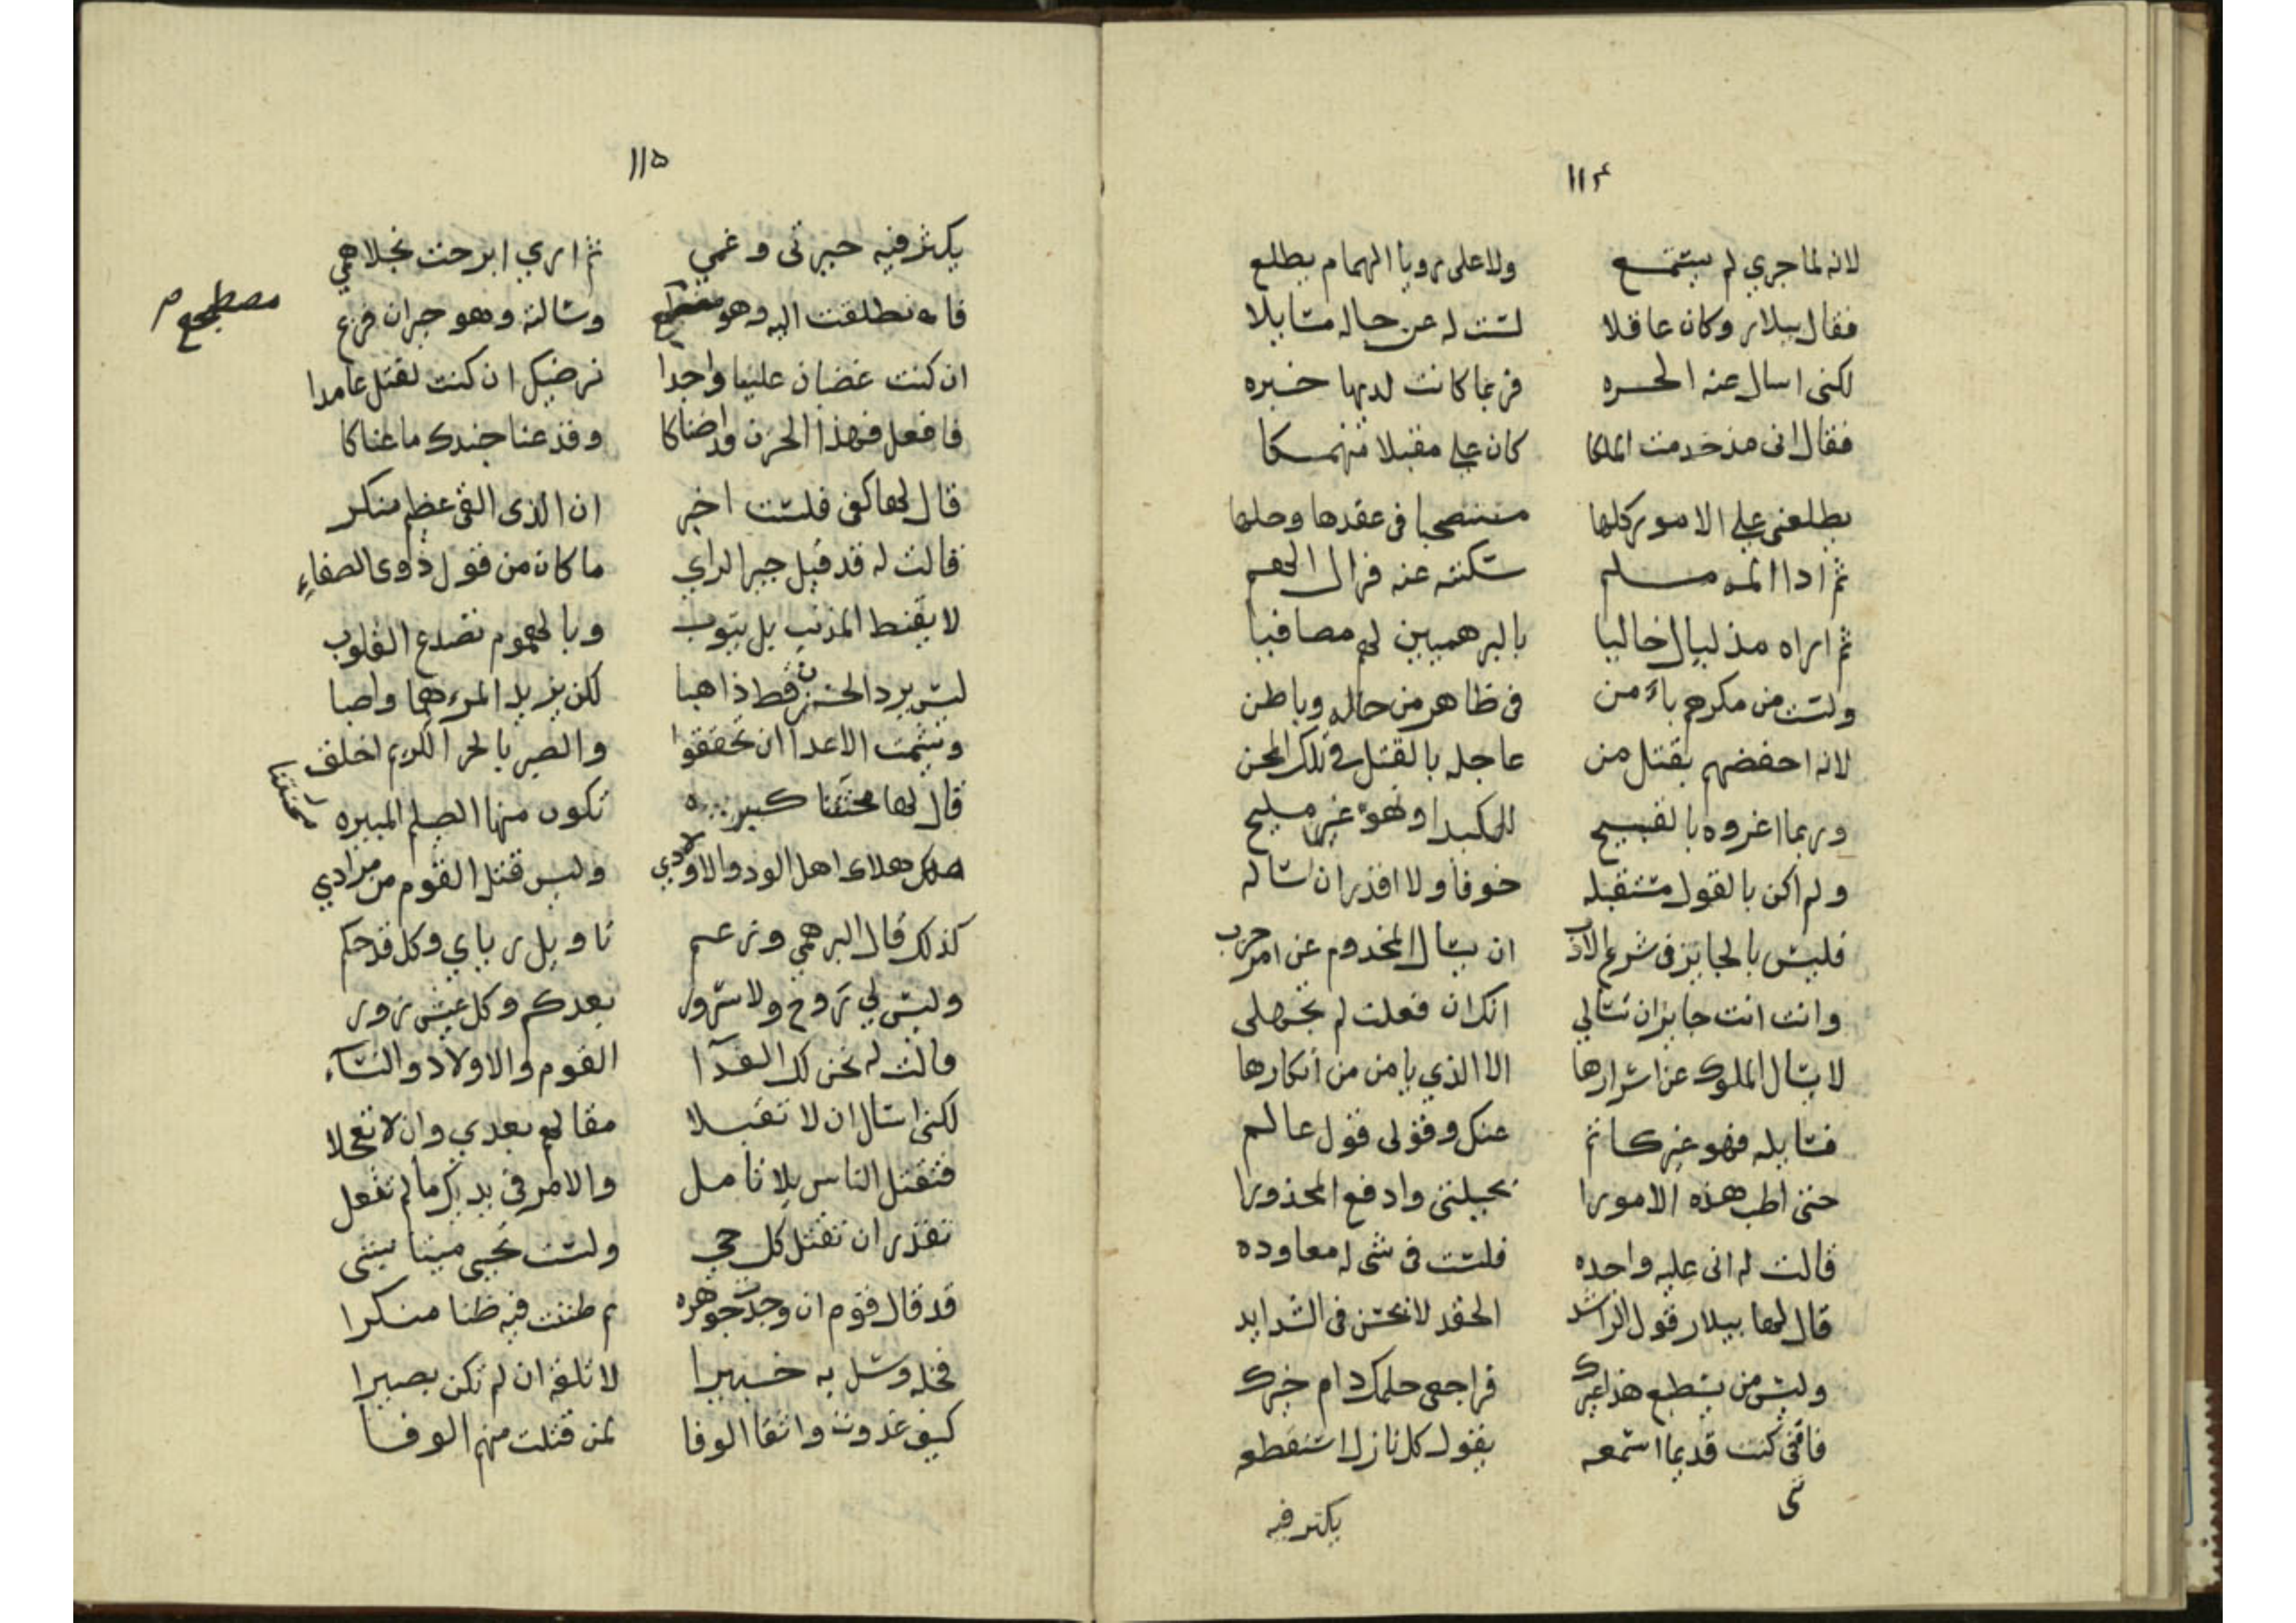 ١١٤
لانه لما جري لم يستمع ولا على رويا الهمام يطلع
فقال بيلار وكان عاقلا لست له عن حاله مسايلا
لكنى اسال عنه الحره فربما كانت لديها خبره
فقال انى مذ خدمت الملكا كان علي مقبلا منهمكا
يطلعنى علي الامور كلها مستنصحبا فى عقدها وحلها
ثم اذا الم مسلم سكنته عنه فزال الهم
ثم اراه مذ ليال خاليا بالبرهميين لهم مصافيا
ولست من مكرهم بآمن فى ظاهر من حاله وباطن
لانه احفضهم بقتل من عاجله بالقتل فى تلك المحن
وربما اغروه بالقبيح للمكيد او لهوة غير مليح
ولم اكن بالقول مستقبله خوفا ولا اقدر ان اساله
فليس بالجايز فى شرع الادب ان يسال المخدوم عن امر حرب
وانت انت جايز ان تسالي انك ان فعلت لم تجهلى
لا يسال الملوك عن اسرارها الا الذي يامن من انكارها
فسايله فهو غير كاتم عنك وقولى قول عالم
حتى اطب هذه الامورا بحيلتى وادفع المحذورا
قالت له انى عليه واجده فلست فى شى له معاوده
قال لها بيلار قول الراشد الحقد لا يحسن فى الشدايد
وليس من يسطيع هذا غيرك فراجعى حلمك دام خيرك
فاننى كنت قديما اسمعه يقول كل نازل استفظعه
نى
يكثر فيه
١١٥
يكثر فيه حيرتى وغمي ثم اري ابرحت يجلا همي
فانطلقت اليه وهو وسالته وهو حيران فزع
مصطجع م
ان كنت غضبان علينا واجدا نرضيك ان كنت لقتل عامدا
فافعل فهذا الحزن قد اضناكا وقد عنا جندك ما عناكا
قال لها كفى فلست اخبر ان الذى القى عظيم منكر
قالت له قد قيل خير الراي ما كان من قول ذوى الصفاءِ
لا يقنط المذنب بل يتوب وبالهموم تصدع القلوب
ليس يرد الحزن قط ذاهبا لكن يزيد المرء هما واصبا
ويشمت الاعدا ان تحققوا والصبر بالحر الكريم اخلق
قال لها محنتنا كبيره تكون منها الصيلم المبيره
محنتنا
هلاك اهل الود والاولادي وليس قتل القوم من مرادي
كذلك قال البرهمي وزعم تاويل رياي وكل قد حكم
وليس لي روح ولا سرور بعدكم وكل عيش زور
قالت له نحن لك الفدآا القوم والاولاد والنسآء
لكنى اسال ان لا تقبلا مقالهم بعدي وان لا تعجلا
فتقتل الناس بلا تامل والامر فى يديك ما لم تفعل
تقدر ان تقتل كل حي ولست تحيى ميتا بشى
قد قال قوم ان وجدت جوهره ثم ظننت فيه ظنا منكرا
فخله وسل به خبيرا لا تلقه ان لم تكن بصيرا
كيف غدوت واثقا الوفا بمن قتلت منهم الوفا